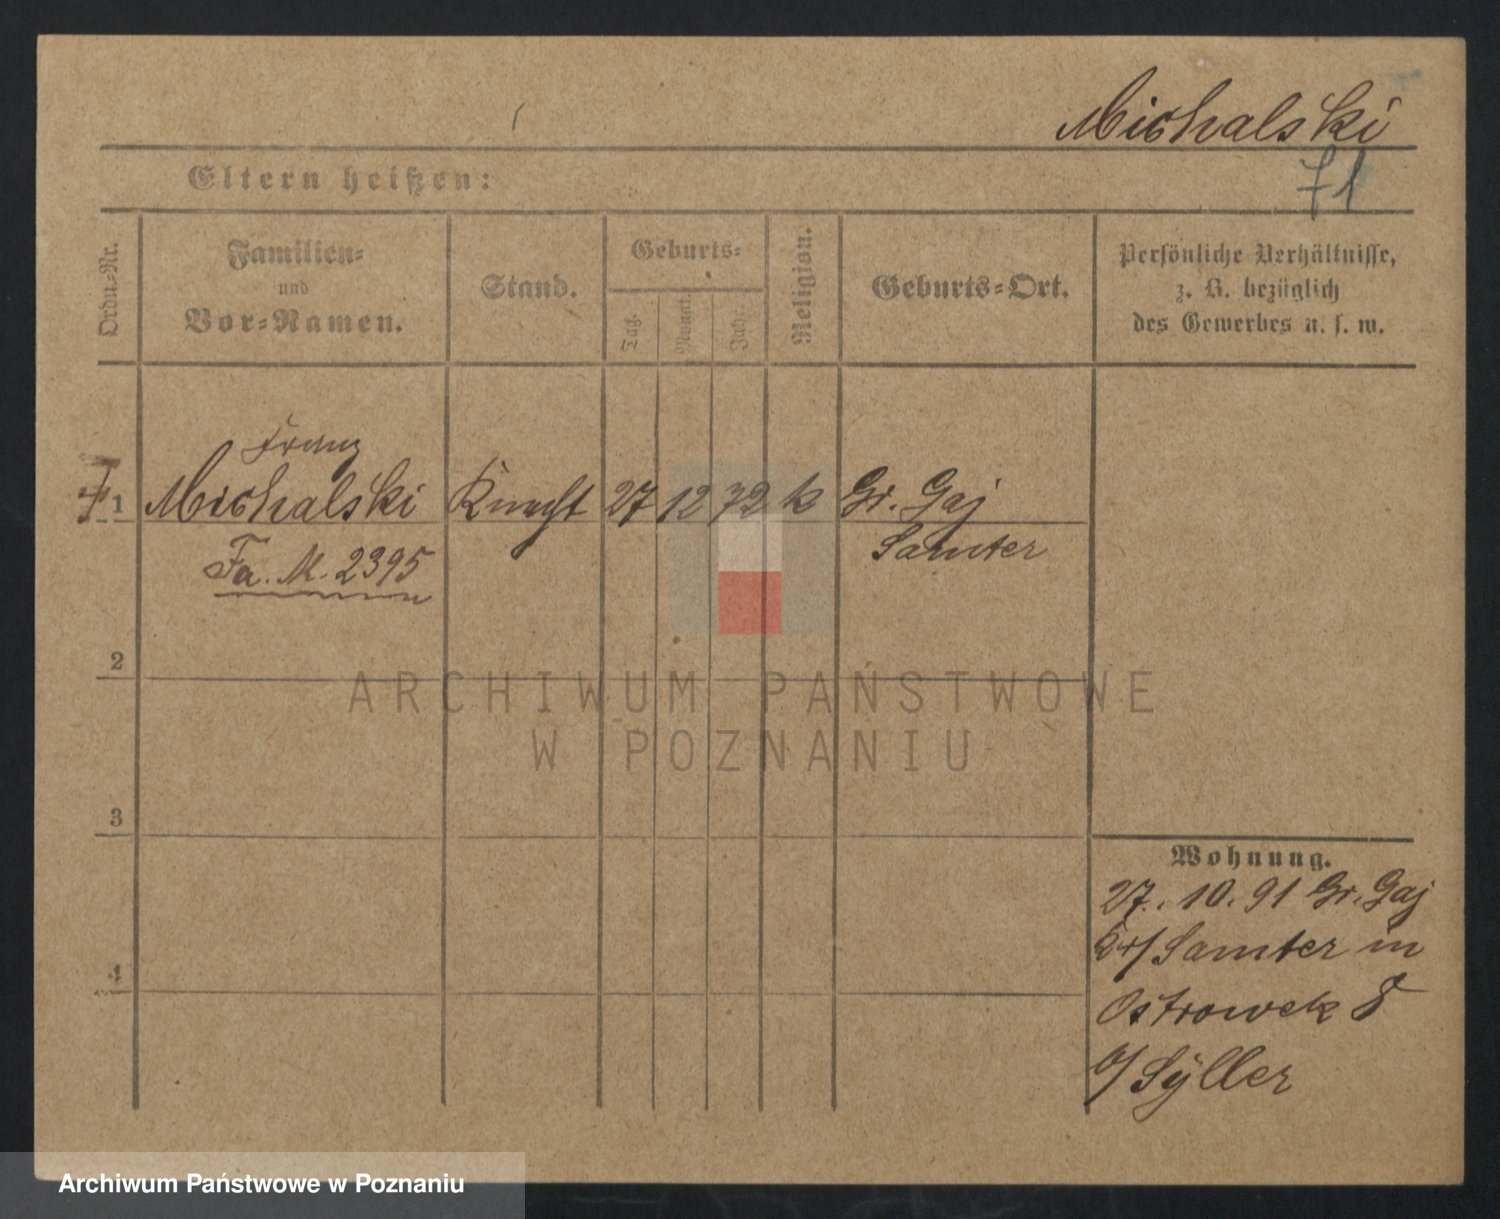 Michalski
71
Eltern heißen:
Ordn.=Nr.
Familien=
und
Vor=Namen.
Stand.
Geburts=
Tag.
Monat.
Jahr.
Religion.
Geburts=Ort.
Persönliche Verhältnisse,
z. B. bezüglich
des Gewerbes u. s. w.
Franz
1 Michalski Knecht 27 12 72 k Gr. Gaj
Samter
Fa. M. 2395
2
3
4
Wohnung.
27. 10. 91 Gr. Gaj
Kr/ Samter in
Ostrowek 8
b/ Syller
ARCHIWUM PAŃSTWOWE
W POZNANIU
Archiwum Państwowe w Poznaniu